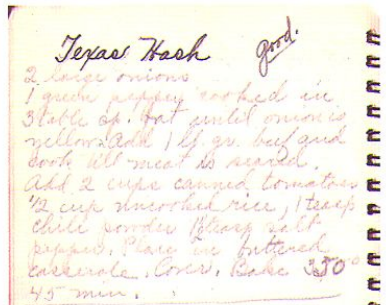 Texas Hash good.
2 large onions
1 green pepper cooked in
3 table sp. fat until onion is
yellow. Add 1 lb gr. beef and
cook till meat is seared.
Add 2 cups canned tomatoes
1/2 cup uncooked rice, 1 teasp
chili powder teasp salt
pepper. Place in buttered
casserole. Cover. Bake 350°
45 min.